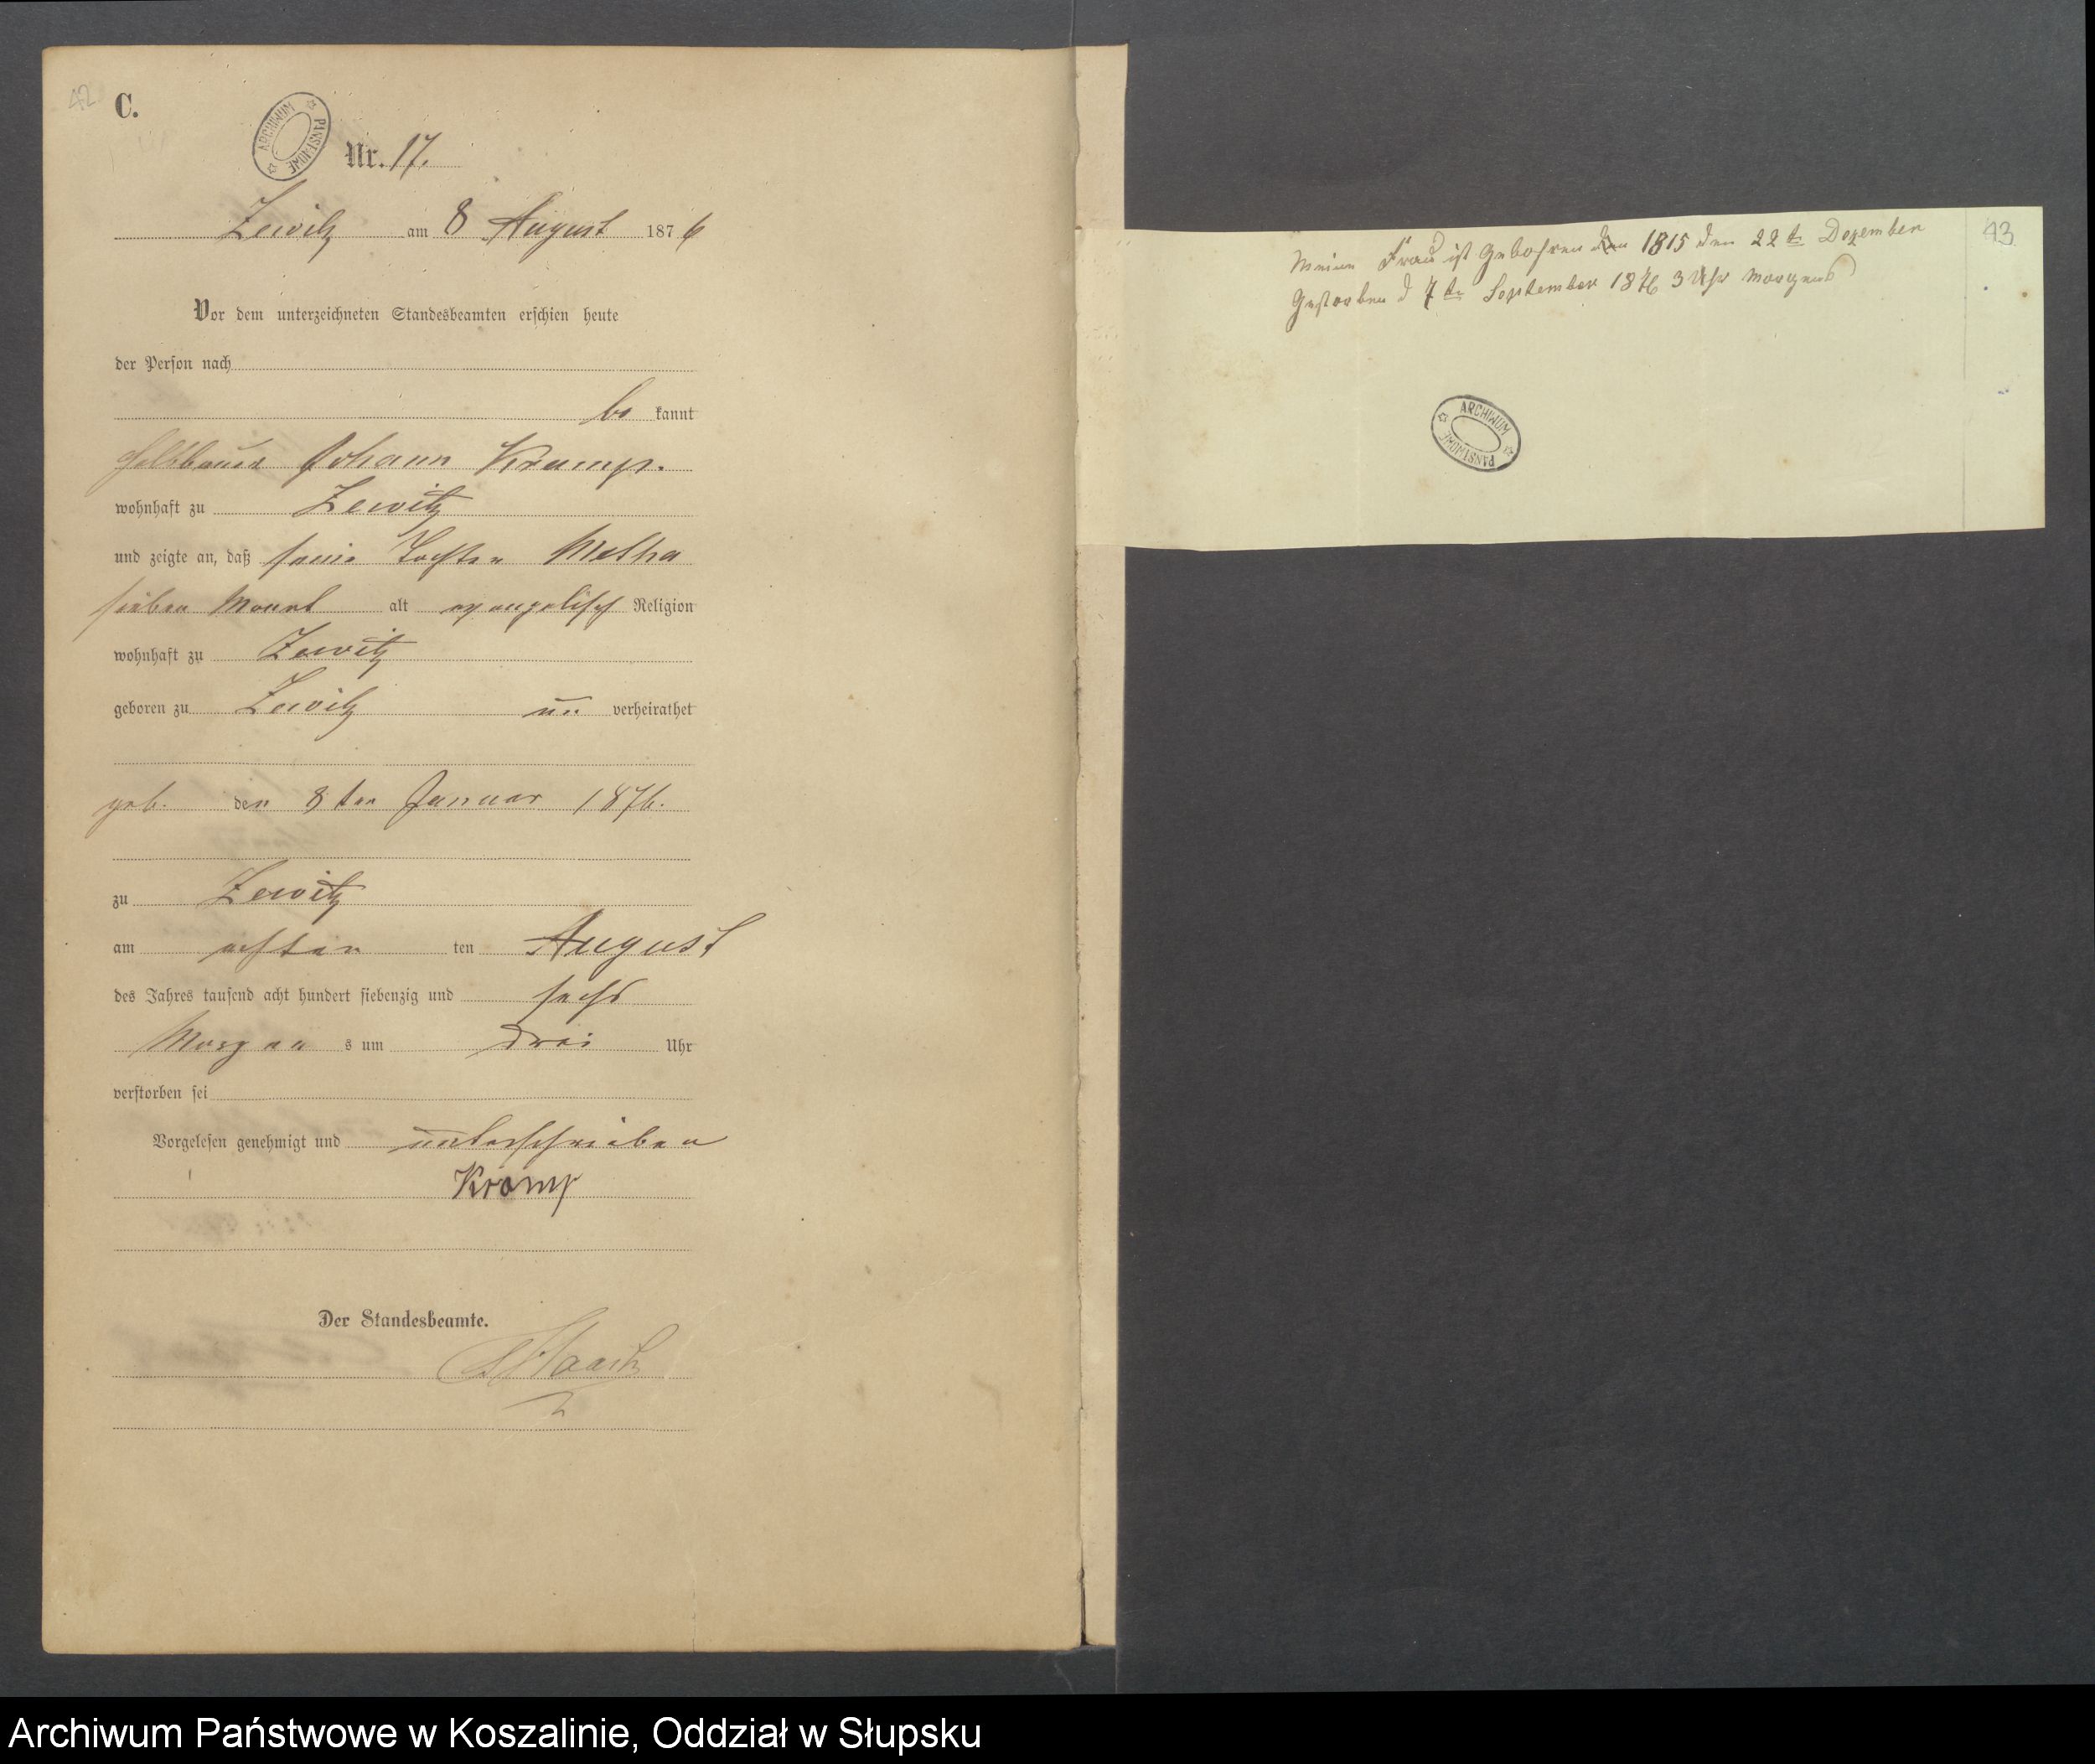 42
C.
ARCHIWUM PAŃSTWOWE
Nr. 17.
Zewitz am 8 August 1876
Vor dem unterzeichneten Standesbeamten erschien heute
der Person nach
be kannt
Halbbauer Johann Kramp.
wohnhaft zu Zewitz
und zeigte an, daß seine Tochter
sieben Monat alt evangelisch Religion
wohnhaft zu Zewitz
geboren zu Zewitz un verheirathet
geb. den 8ten Januar 1876.
zu Zewitz
am achten ten August
des Jahres tausend acht hundert siebenzig und sechs
Morgen s um drei Uhr
verstorben sei
Vorgelesen genehmigt und unterschrieben
Kramp
Der Standesbeamte.
43
Meine Frau ist Gebohren den 1815 den 22 te Dezember
Gestorben d 7 te September 1876 3 Uhr morgens
ARCHIWUM PAŃSTWOWE
Archiwum Państwowe w Koszalinie, Oddział w Słupsku